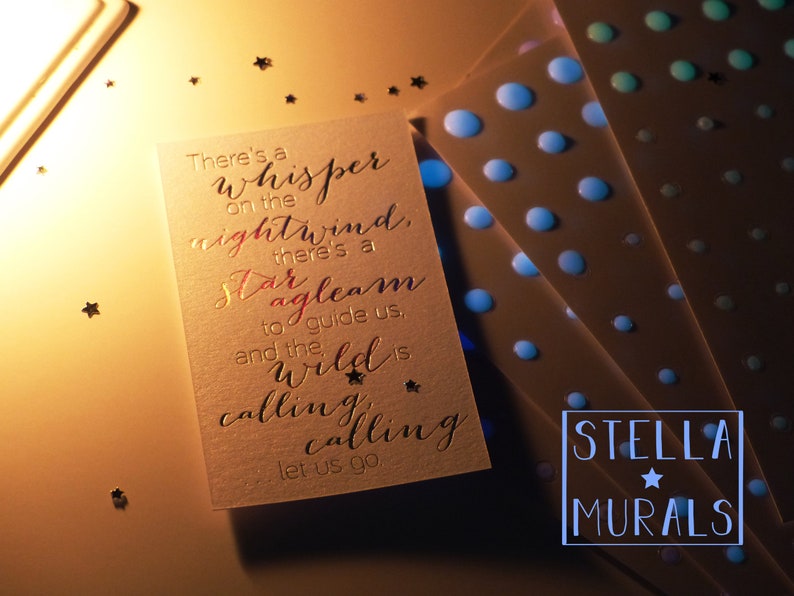 There's a
whisper
on the
nightwind,
there's a
star
agleam
to guide us,
and the
wild is
calling,
calling
. . . . let us go.
STELLA
MURALS